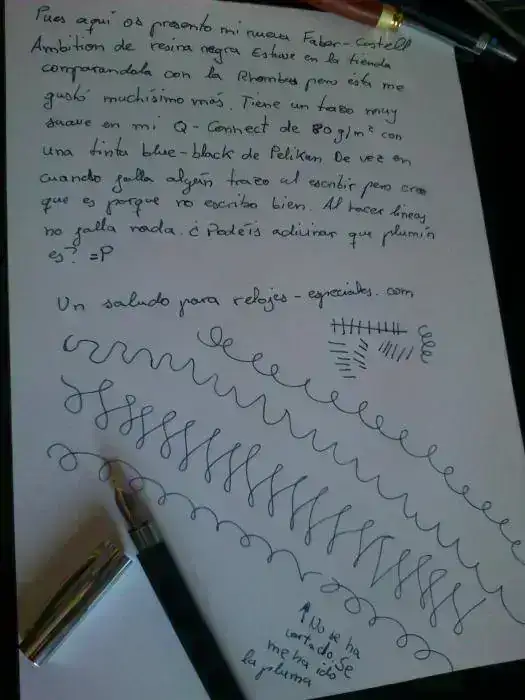 Pues aquí os presento mi nueva Faber-Castell
Ambition de resina negra Estuve en la tienda
comparandola con la Rhombus pero ésta me
gustó muchísimo más. Tiene un trazo muy
suave en mi Q-Connect de 80g/m² con
una tinta blue-black de Pelikan De vez en
cuando falla algún trazo al escribir pero creo
que es porque no escribo bien. Al hacer líneas
no falla nada. ¿Podéis adivinar que plumín
es? =P
Un saludo para relojes-especiales.com
↑ No se ha
cortado. Se
me ha ido
la pluma